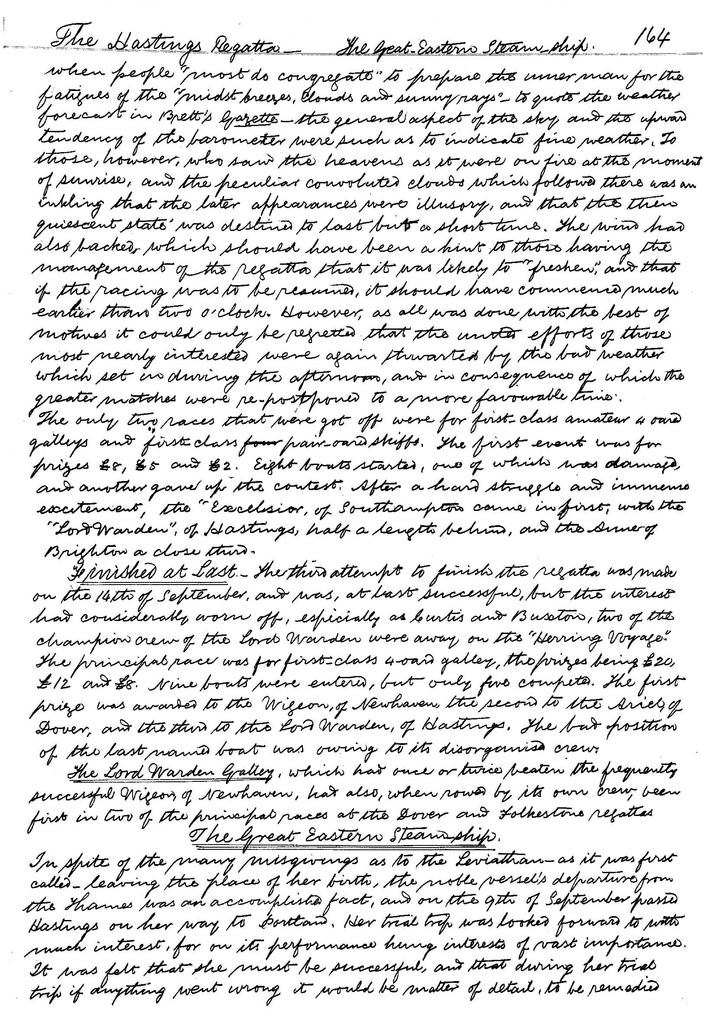 The Hastings Regatta — The Great Eastern Steam ship. 164
when people "most do congregate" to prepare the inner man for the
fatigues of the "midst breezes, clouds and sunny rays" – to quote the weather
forecast in Brett's Gazette – the general aspect of the sky and the upward
tendency of the barometer were such as to indicate fine weather. To
those, however, who saw the heavens as it were on fire at the moment
of sunrise, and the peculiar convoluted clouds which followed there was an
inkling that the later appearances were illusory, and that the then
quiescent state was destined to last but a short time. The wind had
also backed, which should have been a hint to those having the
management of the regatta that it was likely to "freshen", and that
if the racing was to be resumed, it should have commenced much
earlier than two o'clock. However, as all was done with the best of
motives it could only be regretted that the united efforts of those
most nearly interested were again thwarted by the bad weather
which set in during the afternoon, and in consequence of which the
greater matches were re-postponed to a more favourable time.
The only two races that were got off were for first-class amateur 4 oard
galleys and first-class four pair-oard skiffs. The first event was for
prizes £8, £5 and £2. Eight boats started, one of which was damaged,
and another gave up the contest. After a hard struggle and immense
excitement, the "Excelsior, of Southampton came in first, with the
"Lord Warden", of Hastings, half a length behind, and the of
Brighton a close third.
Finished at Last. – The third attempt to finish the regatta was made
on the 14th of September, and was, at last successful, but the interest
had considerably worn off, especially as Curtis and two of the
champion crew of the Lord Warden were away on the "Herring Voyage".
The principal race was for first-class 4-oard galley, the prizes being £20,
£12 and £8. Nine boats were entered, but only five compete. The first
prize was awarded to the Wigeon, of Newhaven the second to the Ariel, of
Dover, and the third to the Lord Warden, of Hastings. The bad position
of the last named boat was owing to its disorganised crew.
The Lord Warden Galley, which had once or twice beaten the frequently
successful Wigeon, of Newhaven, had also, when rowed by its own crew, been
first in two of the principal races at the Dover and Folkestone regattas
The Great Eastern Steam ship.
In spite of the many misgivings as to the Leviathan – as it was first
called – leaving the place of her birth, the noble vessel's departure from
the Thames was an accomplished fact, and on the 9th of September passed
Hastings on her way to Portland. Her trial trip was looked forward to with
much interest, for on its performance hung interests of vast importance.
It was felt that she must be successful, and that during her trial
trip if anything went wrong it would be matter of detail, to be remedied